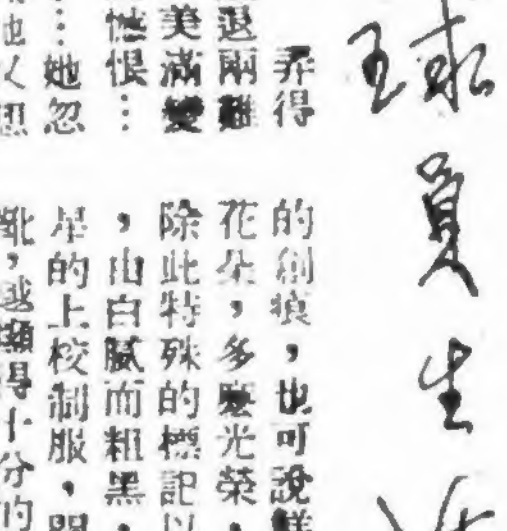 球員生
弄得
退兩難
美滿變
憾恨…
…她忽
他又想
的創痕，也可說
花朵，多麼光榮，
除此特殊的標記以
，由白膩而粗黑，
星的上校制服，
靴，越顯得十分的